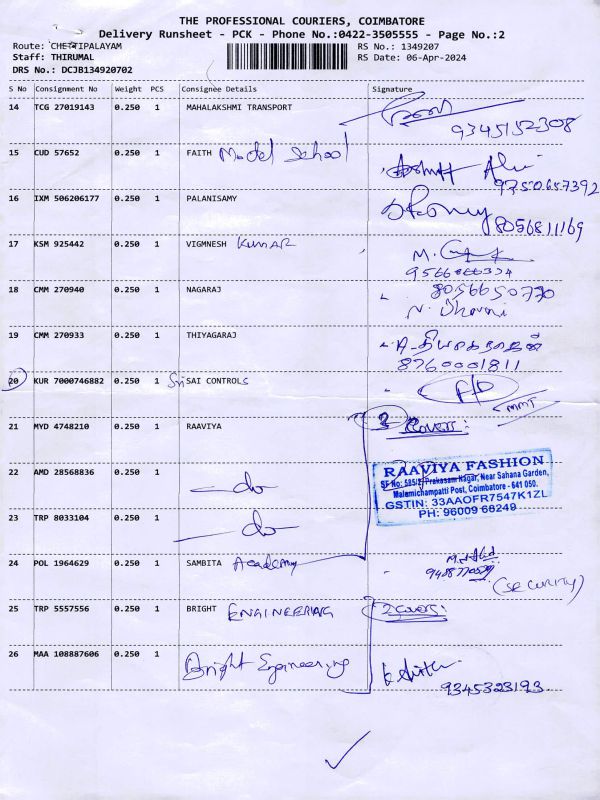 THE PROFESSIONAL COURIERS, COIMBATORE
Delivery Runsheet - PCK - Phone No.:0422-3505555 - Page No.:2
Route: CHETTIPALAYAM
RS No.: 1349207
Staff: THIRUMAL
RS Date: 06-Apr-2024
DRS No.: DCJB134920702
S No Consignment No Weight PCS Consignee Details Signature
14 TCG 27019143 0.250 1 MAHALAKSHMI TRANSPORT
9345152308
15 CUD 57652 0.250 1 FAITH Model School
9750657392
16 IXM 506206177 0.250 1 PALANISAMY
8056811169
17 KSM 925442 0.250 1 VIGMNESH KUMAR
M.
18 CMM 270940 0.250 1 NAGARAJ 8056650770
N. Dharani
19 CMM 270933 0.250 1 THIYAGARAJ A-தியாகராஜன்
8760001811
20 KUR 7000746882 0.250 1 Sri SAI CONTROLS
MMT
21 MYD 4748210 0.250 1 RAAVIYA 3 Covers:
RAAVIYA FASHION
SF No: 585/2, Prakasam Nagar, Near Sahana Garden,
Malumichampatti Post, Coimbatore - 641 050.
GSTIN: 33AAOFR7547K1ZL
PH: 96009 68249
22 AMD 28568836 0.250 1 -do-
23 TRP 8033104 0.250 1 -do-
24 POL 1964629 0.250 1 SAMBITA Academy
(SECURITY)
25 TRP 5557556 0.250 1 BRIGHT ENGINEERING 2 covers:
26 MAA 108887606 0.250 1 Bright Engineering
9345323193